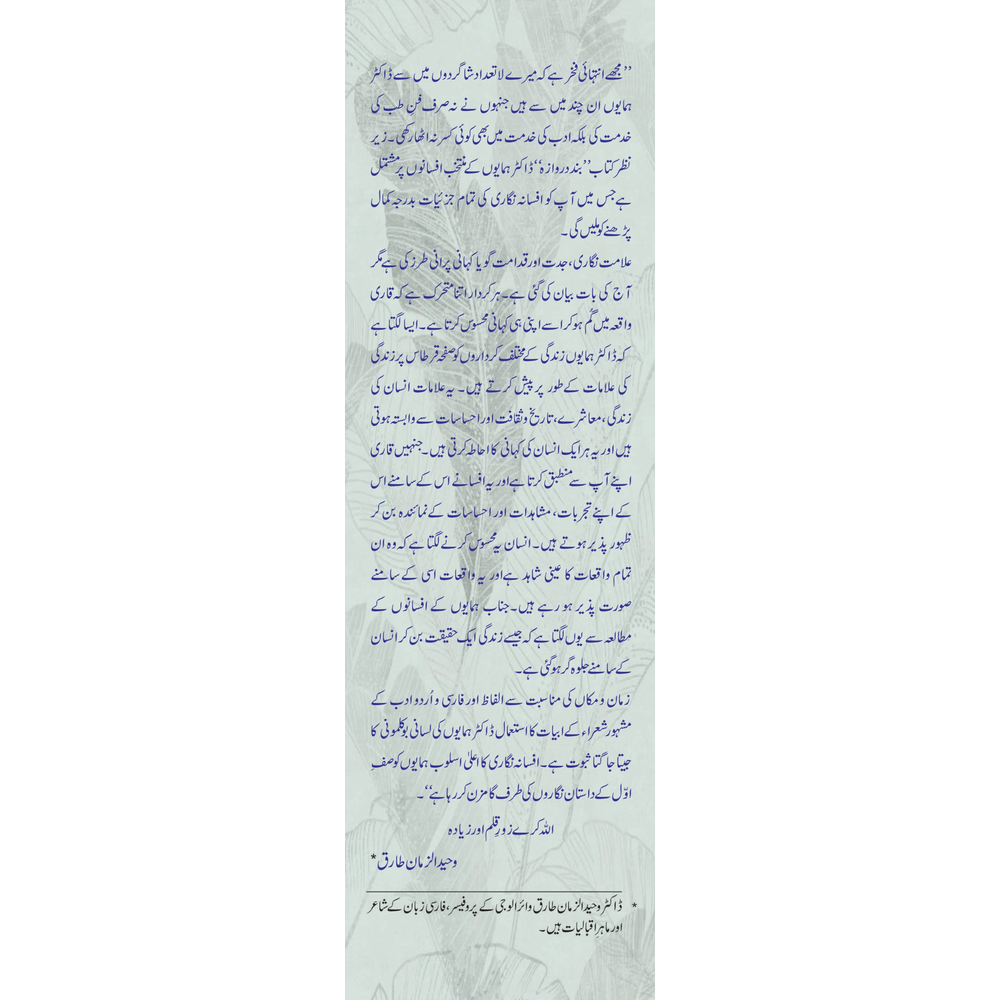 ’’مجھے انتہائی فخر ہے کہ میرے لاتعداد شاگردوں میں سے ڈاکٹر
ہمایوں ان چند میں سے ہیں جنہوں نے نہ صرف فنِ طب کی
خدمت کی بلکہ ادب کی خدمت میں بھی کوئی کسر نہ اٹھا رکھی۔ زیر
نظر کتاب ’’بند دروازہ‘‘ ڈاکٹر ہمایوں کے منتخب افسانوں پر مشتمل
ہے جس میں آپ کو افسانہ نگاری کی تمام جزئیات بدرجہ کمال
پڑھنے کو ملیں گی۔
علامت نگاری، جدت اور قدامت گویا کہانی پرانی طرز کی ہے مگر
آج کی بات بیان کی گئی ہے۔ ہر کردار اتنا متحرک ہے کہ قاری
واقعہ میں گُم ہو کر اسے اپنی ہی کہانی محسوس کرتا ہے۔ ایسا لگتا ہے
کہ ڈاکٹر ہمایوں زندگی کے مختلف کرداروں کو صفحۂ قرطاس پر زندگی
کی علامات کے طور پر پیش کرتے ہیں۔ یہ علامات انسان کی
زندگی، معاشرے، تاریخ و ثقافت اور احساسات سے وابستہ ہوتی
ہیں اور یہ ہر ایک انسان کی کہانی کا احاطہ کرتی ہیں۔ جنہیں قاری
اپنے آپ سے منطبق کرتا ہے اور یہ افسانے اس کے سامنے اس
کے اپنے تجربات، مشاہدات اور احساسات کے نمائندہ بن کر
ظہور پذیر ہوتے ہیں۔ انسان یہ محسوس کرنے لگتا ہے کہ وہ ان
تمام واقعات کا عینی شاہد ہے اور یہ واقعات اسی کے سامنے
صورت پذیر ہو رہے ہیں۔ جناب ہمایوں کے افسانوں کے
مطالعہ سے یوں لگتا ہے کہ جیسے زندگی ایک حقیقت بن کر انسان
کے سامنے جلوہ گر ہو گئی ہے۔
زمان و مکاں کی مناسبت سے الفاظ اور فارسی و اُردو ادب کے
مشہور شعراء کے ابیات کا استعمال ڈاکٹر ہمایوں کی لسانی بوقلمونی کا
جیتا جاگتا ثبوت ہے۔ افسانہ نگاری کا اعلیٰ اسلوب ہمایوں کو صفِ
اوّل کے داستان نگاروں کی طرف گامزن کر رہا ہے‘‘۔
اللہ کرے زورِ قلم اور زیادہ
وحید الزمان طارق*
* ڈاکٹر وحید الزمان طارق وائرالوجی کے پروفیسر، فارسی زبان کے شاعر
اور ماہرِ اقبالیات ہیں۔